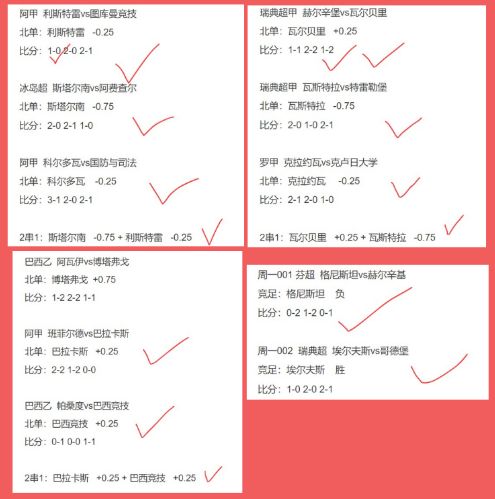 阿甲 利斯特雷vs图库曼竞技
北单：利斯特雷 -0.25
比分：1-0 2-0 2-1
冰岛超 斯塔尔南vs阿费查尔
北单：斯塔尔南 -0.75
比分：2-0 2-1 1-0
阿甲 科尔多瓦vs国防与司法
北单：科尔多瓦 -0.25
比分：3-1 2-0 2-1
2串1：斯塔尔南 -0.75 + 利斯特雷 -0.25
瑞典超甲 赫尔辛堡vs瓦尔贝里
北单：瓦尔贝里 +0.25
比分：1-1 2-2 1-2
瑞典超甲 瓦斯特拉vs特雷勒堡
北单：瓦斯特拉 -0.75
比分：2-0 1-0 2-1
罗甲 克拉约瓦vs克卢日大学
北单：克拉约瓦 -0.25
比分：2-1 2-0 1-0
2串1：瓦尔贝里 +0.25 + 瓦斯特拉 -0.75
巴西乙 阿瓦伊vs博塔弗戈
北单：博塔弗戈 +0.75
比分：1-2 2-2 1-1
阿甲 班菲尔德vs巴拉卡斯
北单：巴拉卡斯 +0.25
比分：2-2 1-2 0-0
巴西乙 帕桑度vs巴西竞技
北单：巴西竞技 +0.25
比分：0-1 0-0 1-1
2串1：巴拉卡斯 +0.25 + 巴西竞技 +0.25
周一001 芬超 格尼斯坦vs赫尔辛基
竞足：格尼斯坦 负
比分：0-2 1-2 0-1
周一002 瑞典超 埃尔夫斯vs哥德堡
竞足：埃尔夫斯 胜
比分：1-0 2-0 2-1